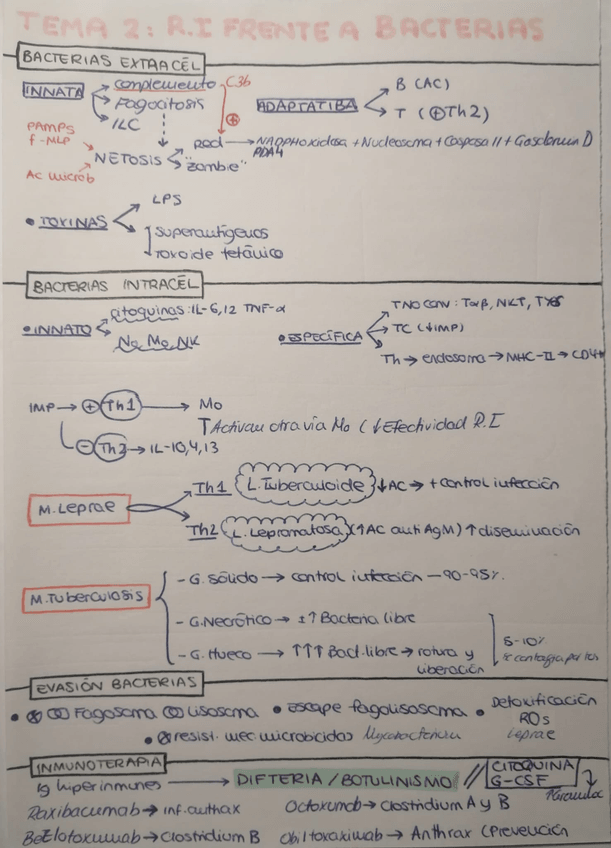 TEMA 2: R.I FRENTE A BACTERIAS
BACTERIAS EXTRACÉL
INNATA → complemento C3b
Fagocitosis
ILC
ADAPTATIBA → B (AC)
T (⊕Th2)
PAMPs
f-MLP
Ac microb
NETOSIS
Red → NADPHoxidasa + Nucleosoma + Caspasa 11 + Gasdermin D
PDA4
"zombie"
• TOXINAS → LPS
superantígenos
Toxoide tetánico
BACTERIAS INTRACÉL
• INNATO → Citoquinas: IL-6,12 TNF-α
Nø Mø NK
• ESPECÍFICA → TNO CONV: Tαβ, NKT, Tγδ
TC (↓IMP)
Th → endosoma → MHC-II → CD4+
IMP → ⊕ Th1 → Mo
↑Activan otra vía Mo (↓Efectividad R.I
⊖ Th2 → IL-10,4,13
M.Leprae
Th1 L.Tuberculoide ↓AC → + control infección
Th2 L. Lepromatosa (↑AC anti AgM) ↑ diseminación
M.Tuberculosis
- G. Sólido → control infección - 90-95%.
- G.Necrótico → ±↑ Bacteria libre
- G. Hueco → ↑↑↑ Bact.libre → rotura y
liberación
5-10%
EVASIÓN BACTERIAS
• Fagosoma Lisosoma • Escape fagolisosoma • Detoxificación
ROs
Leprae
• resist. mec microbicidas Mycobacterium
INMUNOTERAPIA
Ig hiperinmunes → DIFTERIA/BOTULINISMO // CITOQUINA
G-CSF
Raxibacumab → inf. anthax Octoxumab → Clostridium A y B
Bezlotoxumab → Clostridium B Obiltoxaximab → Anthrax (Prevención